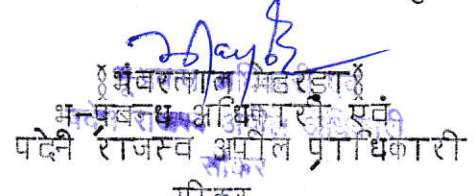 (भंवरलाल मिडरड़ा)
भ-प्रबन्ध अधिकारी एवं
पदेन राजस्व अपील प्राधिकारी
सीकर